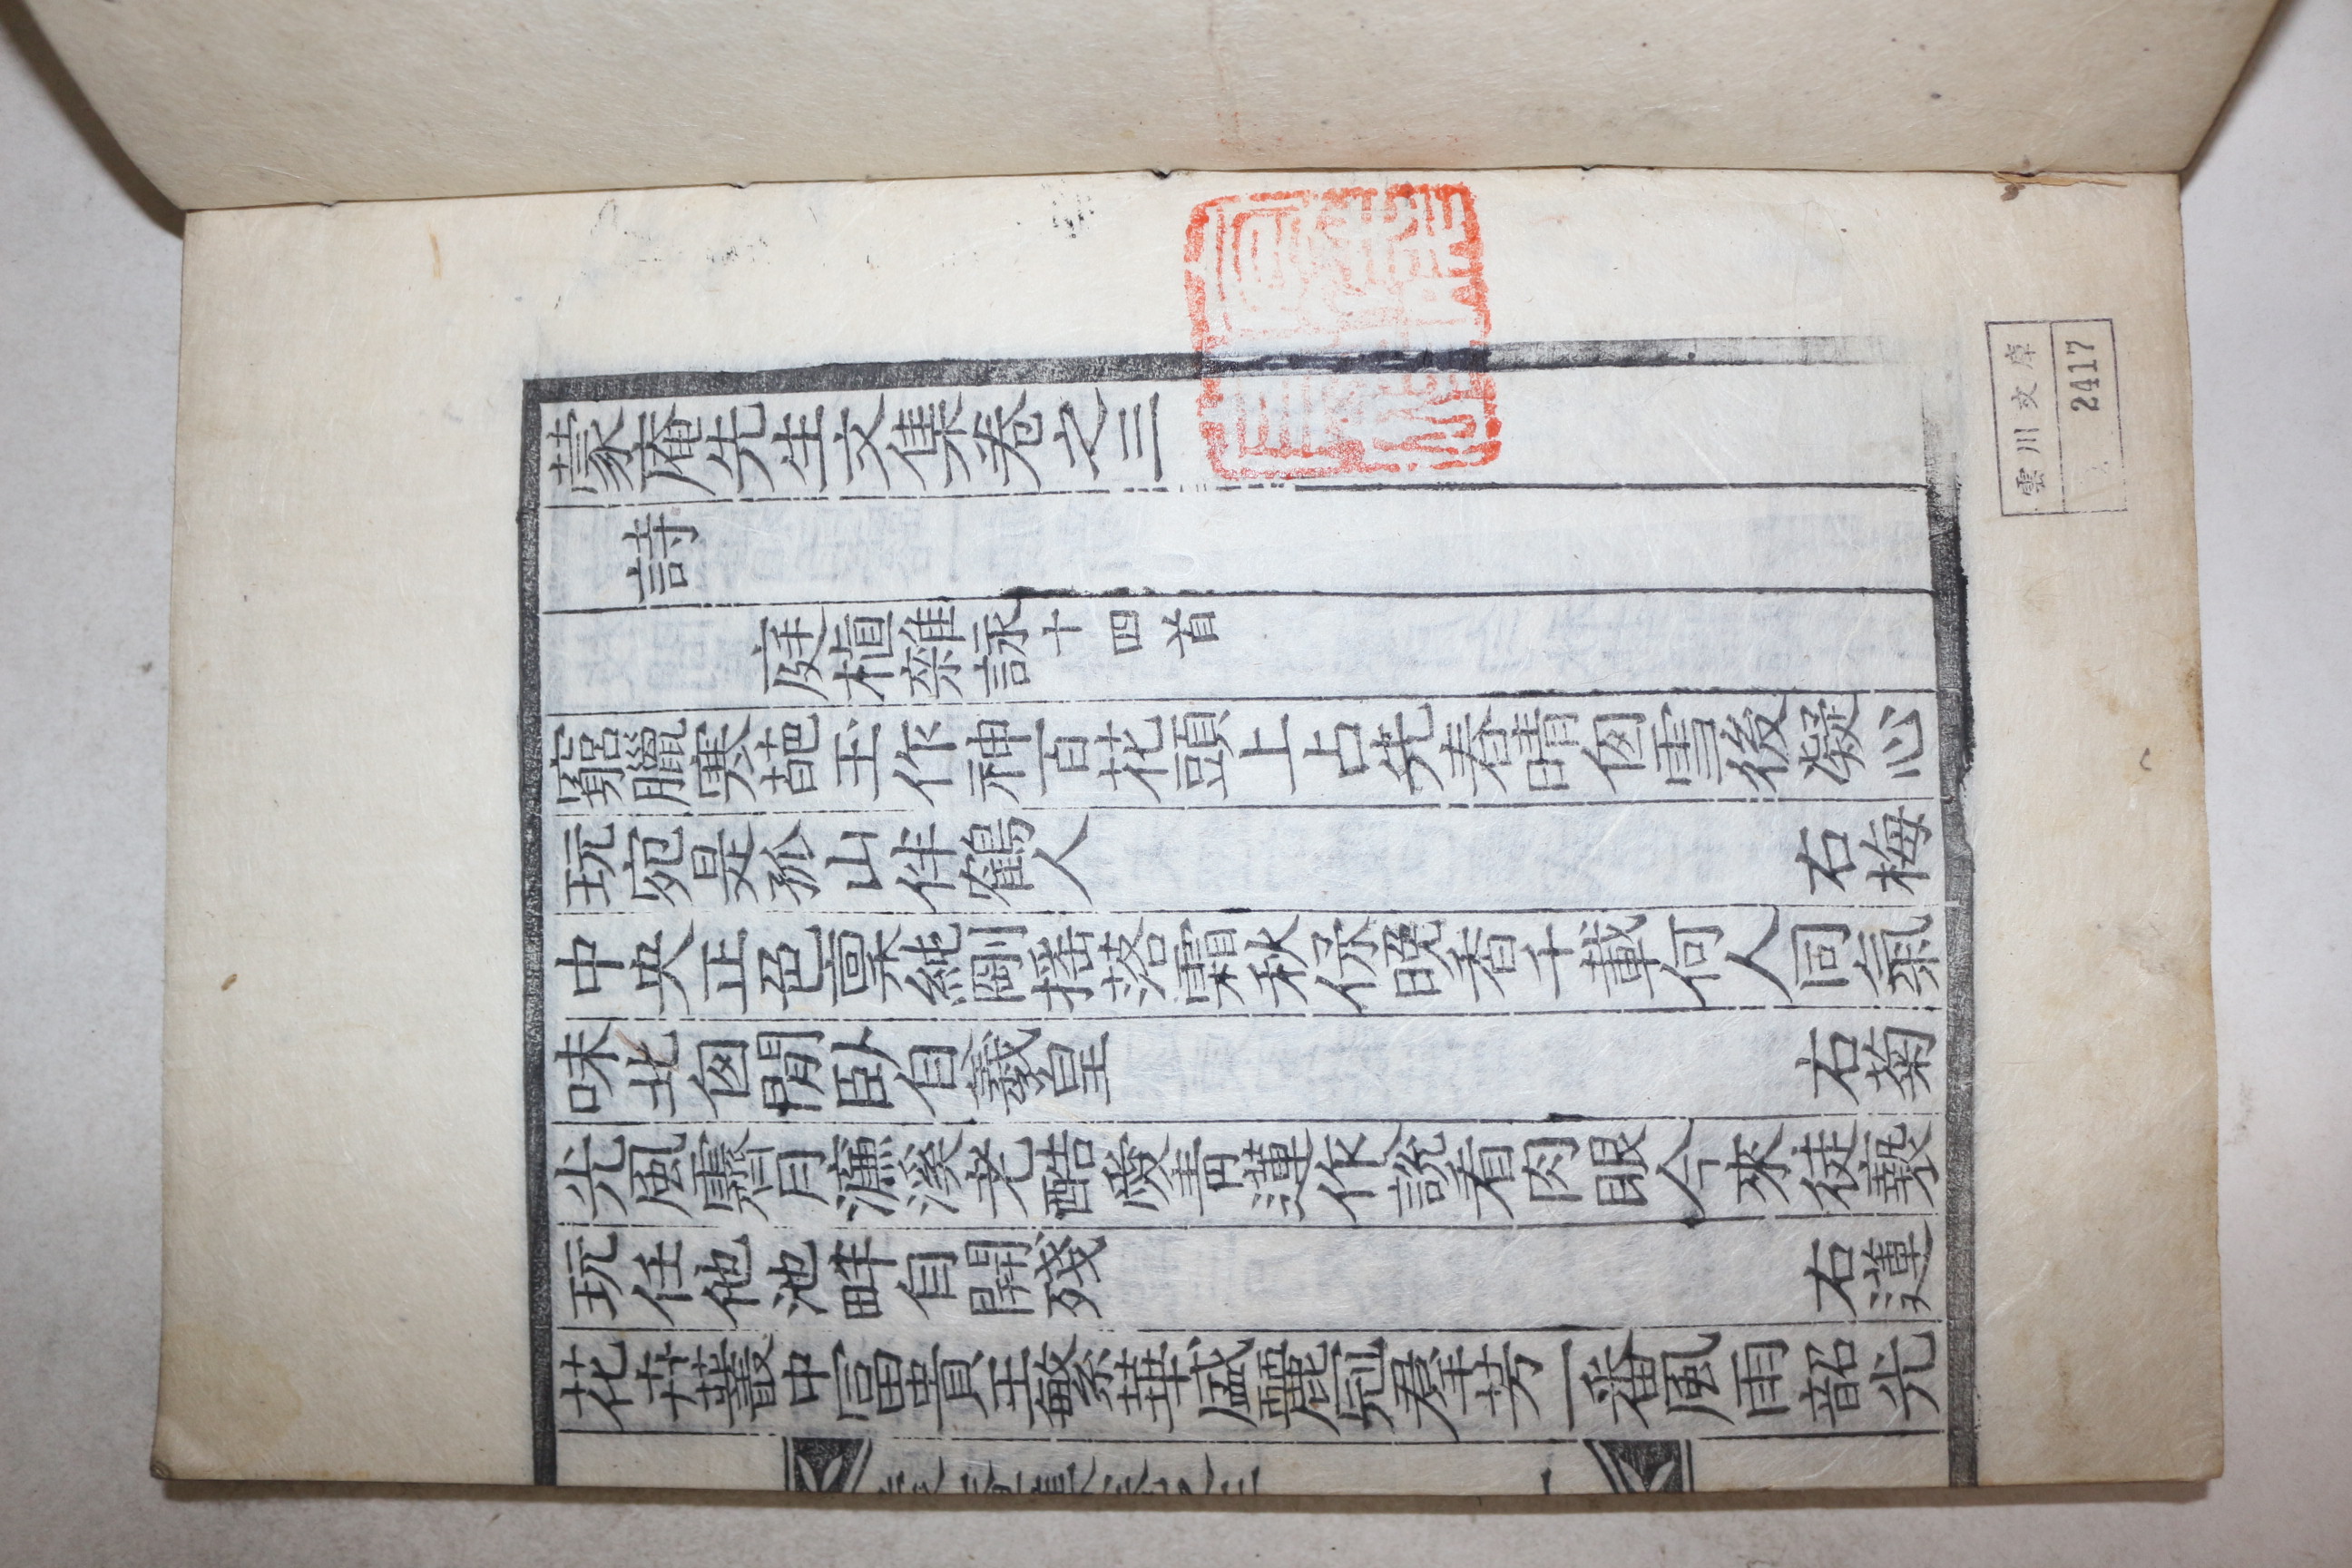 蒙庵先生文集卷之三
詩
庭植雜詠十四首
窮臘寒葩玉作神百花頭上占先春晴囱雪後凝心
玩宛是孤山伴鶴人
右梅
中央正色稟純剛搖落霜秋保晚香千載何人同氣
味北囱閒臥自羲皇
右菊
光風霽月濂溪老酷愛青蓮作說看肉眼今來徒褻
玩任他池畔自開殘
右蓮
花卉叢中富貴王繁華盛麗冠羣芳一番風雨韶光
雲川文庫
2417